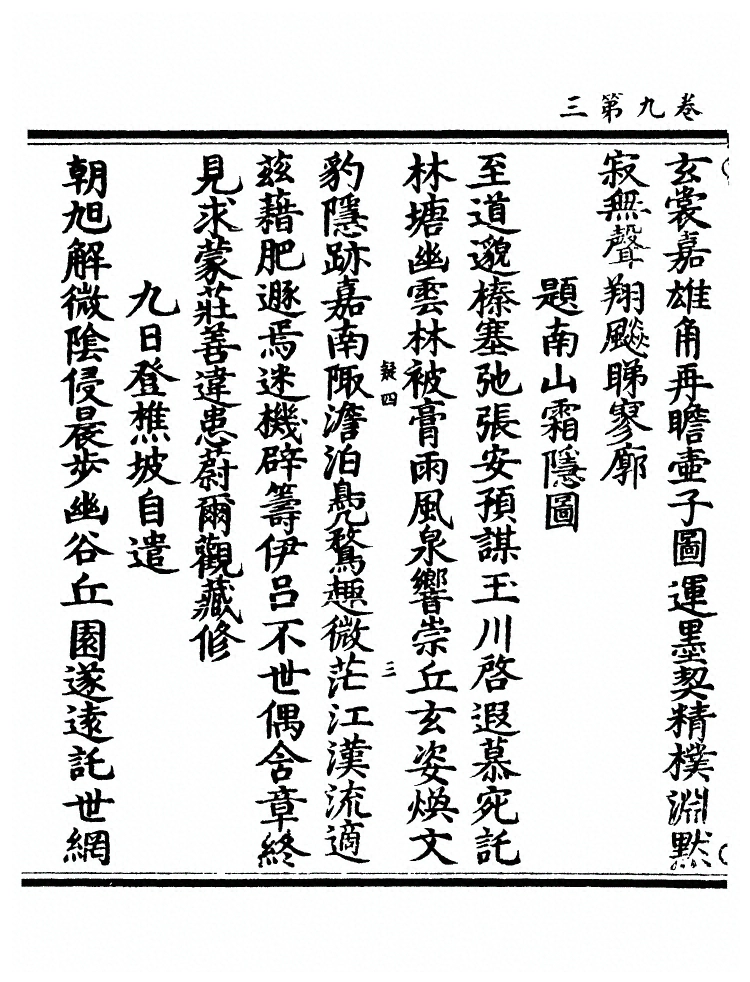 卷九第三
玄裳嘉雄角再瞻壺子圖運墨契精樸淵默
寂無聲翔飈睇寥廓
題南山霜隱圖
至道邈榛塞弛張安預謀玉川啓遐慕宛託
林塘幽雲林被膏雨風泉響崇丘玄姿煥文
疑四
三
豹隱跡嘉南陬澹泊鳧鶩趣微茫江漢流適
茲藉肥遯焉迷機辟籌伊呂不世偶含章終
見求蒙莊善違患蔚爾觀藏修
九日登樵坡自遣
朝旭解微陰侵晨步幽谷丘園遂遠託世網